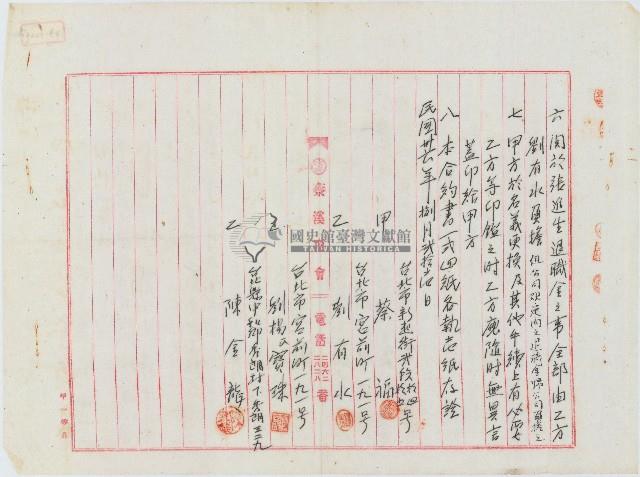 六、關於張進生退職金之事全部由乙方
劉有水負擔但公司規定內之退職金歸公司負擔之
七、甲方於名義更換及其他手續上有必要
乙方等印鑑之時乙方應隨時無異言
蓋印給甲方
八、本合約書一式四紙各執壱紙存證
民國卅六年捌月貳拾 日
甲
台北市新起街貳段
蔡 福
乙
台北市宮前町一九一号
劉有水
台北市宮前町一九一号
劉楊氏寶珠
乙
台北縣中和鄉秀朗村下秀朗三三九
陳金龍
泰溪商會 電話 番
國史館臺灣文獻館
TAIWAN HISTORICA